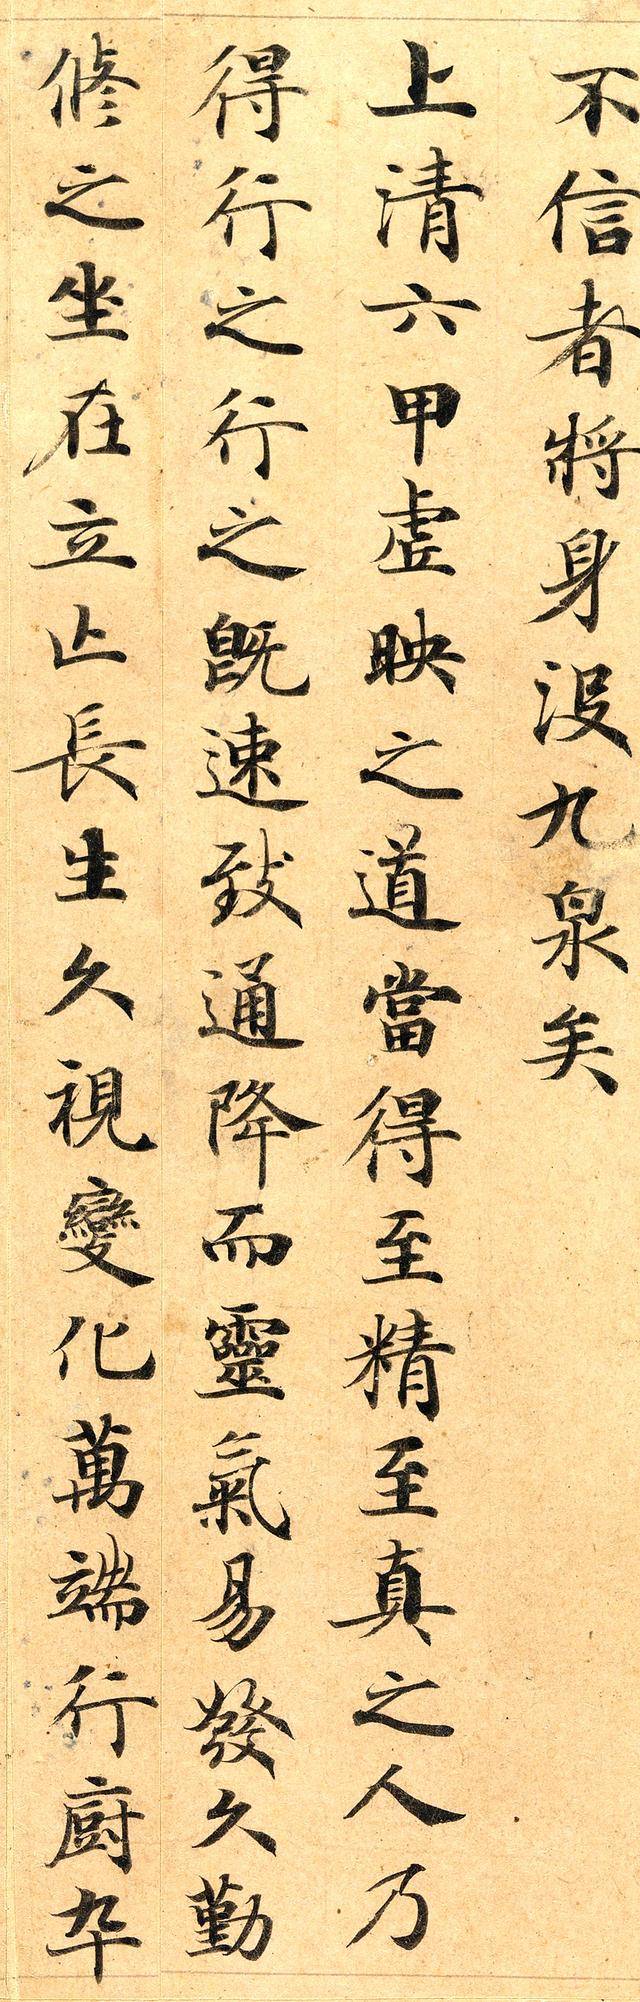 不信者將身没九泉矣
上清六甲虚映之道當得至精至真之人乃
得行之行之既速致通降而靈氣易發久勤
修之坐在立止長生久視變化万端行廚卒